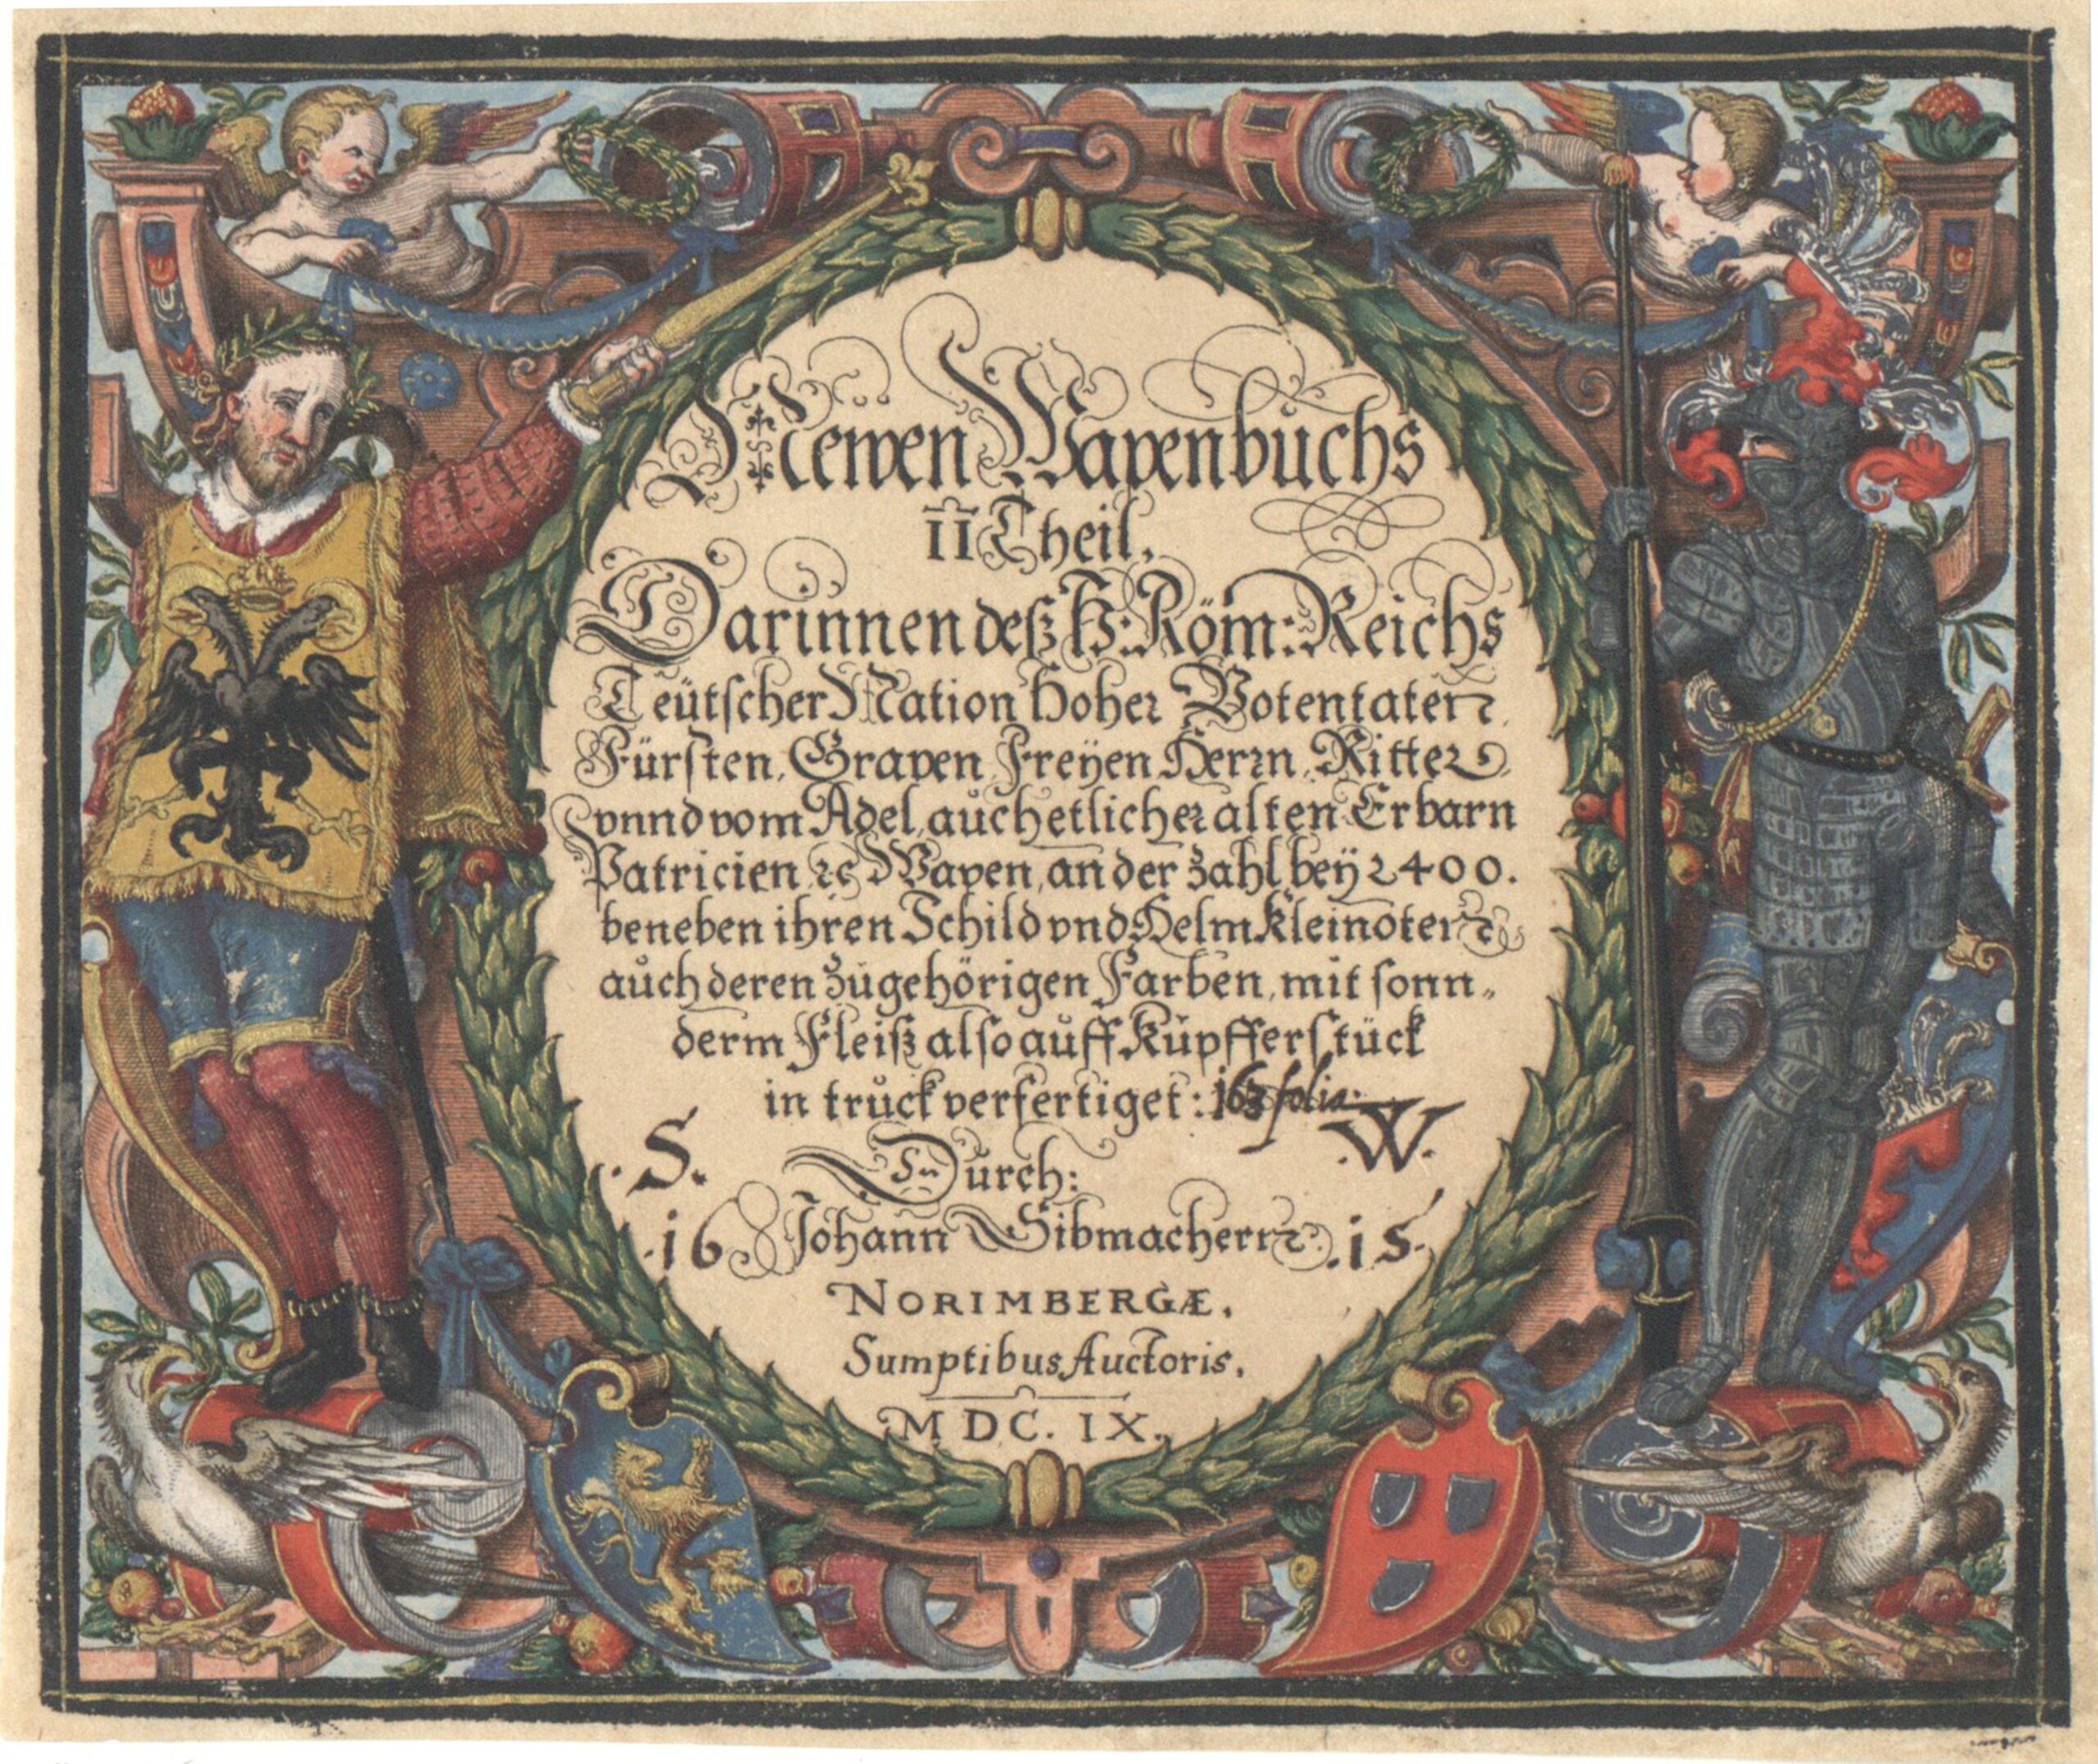 Newen Wapenbuchs
II Theil,
Darinnen deß H: Röm: Reichs
Teütscher Nation hoher Potentaten,
Fürsten, Graven, Freyen, Herrn, Ritter,
vnnd vom Adel, aůch etlicher alten Erbarn
Patricien ꝛc Wapen, an der zahl bey 2400.
beneben ihren Schild vnd Helm Kleinoten
aůch deren zůgehörigen Farben, mit sonn„
derm Fleiß also aůff Kůpfferstück
in trůck verfertiget: 163 folia.
.S. W.
Důrch:
.16 Johann Sibmachern .15.
NORIMBERGÆ.
Sumptibus Auctoris.
MDC. IX.